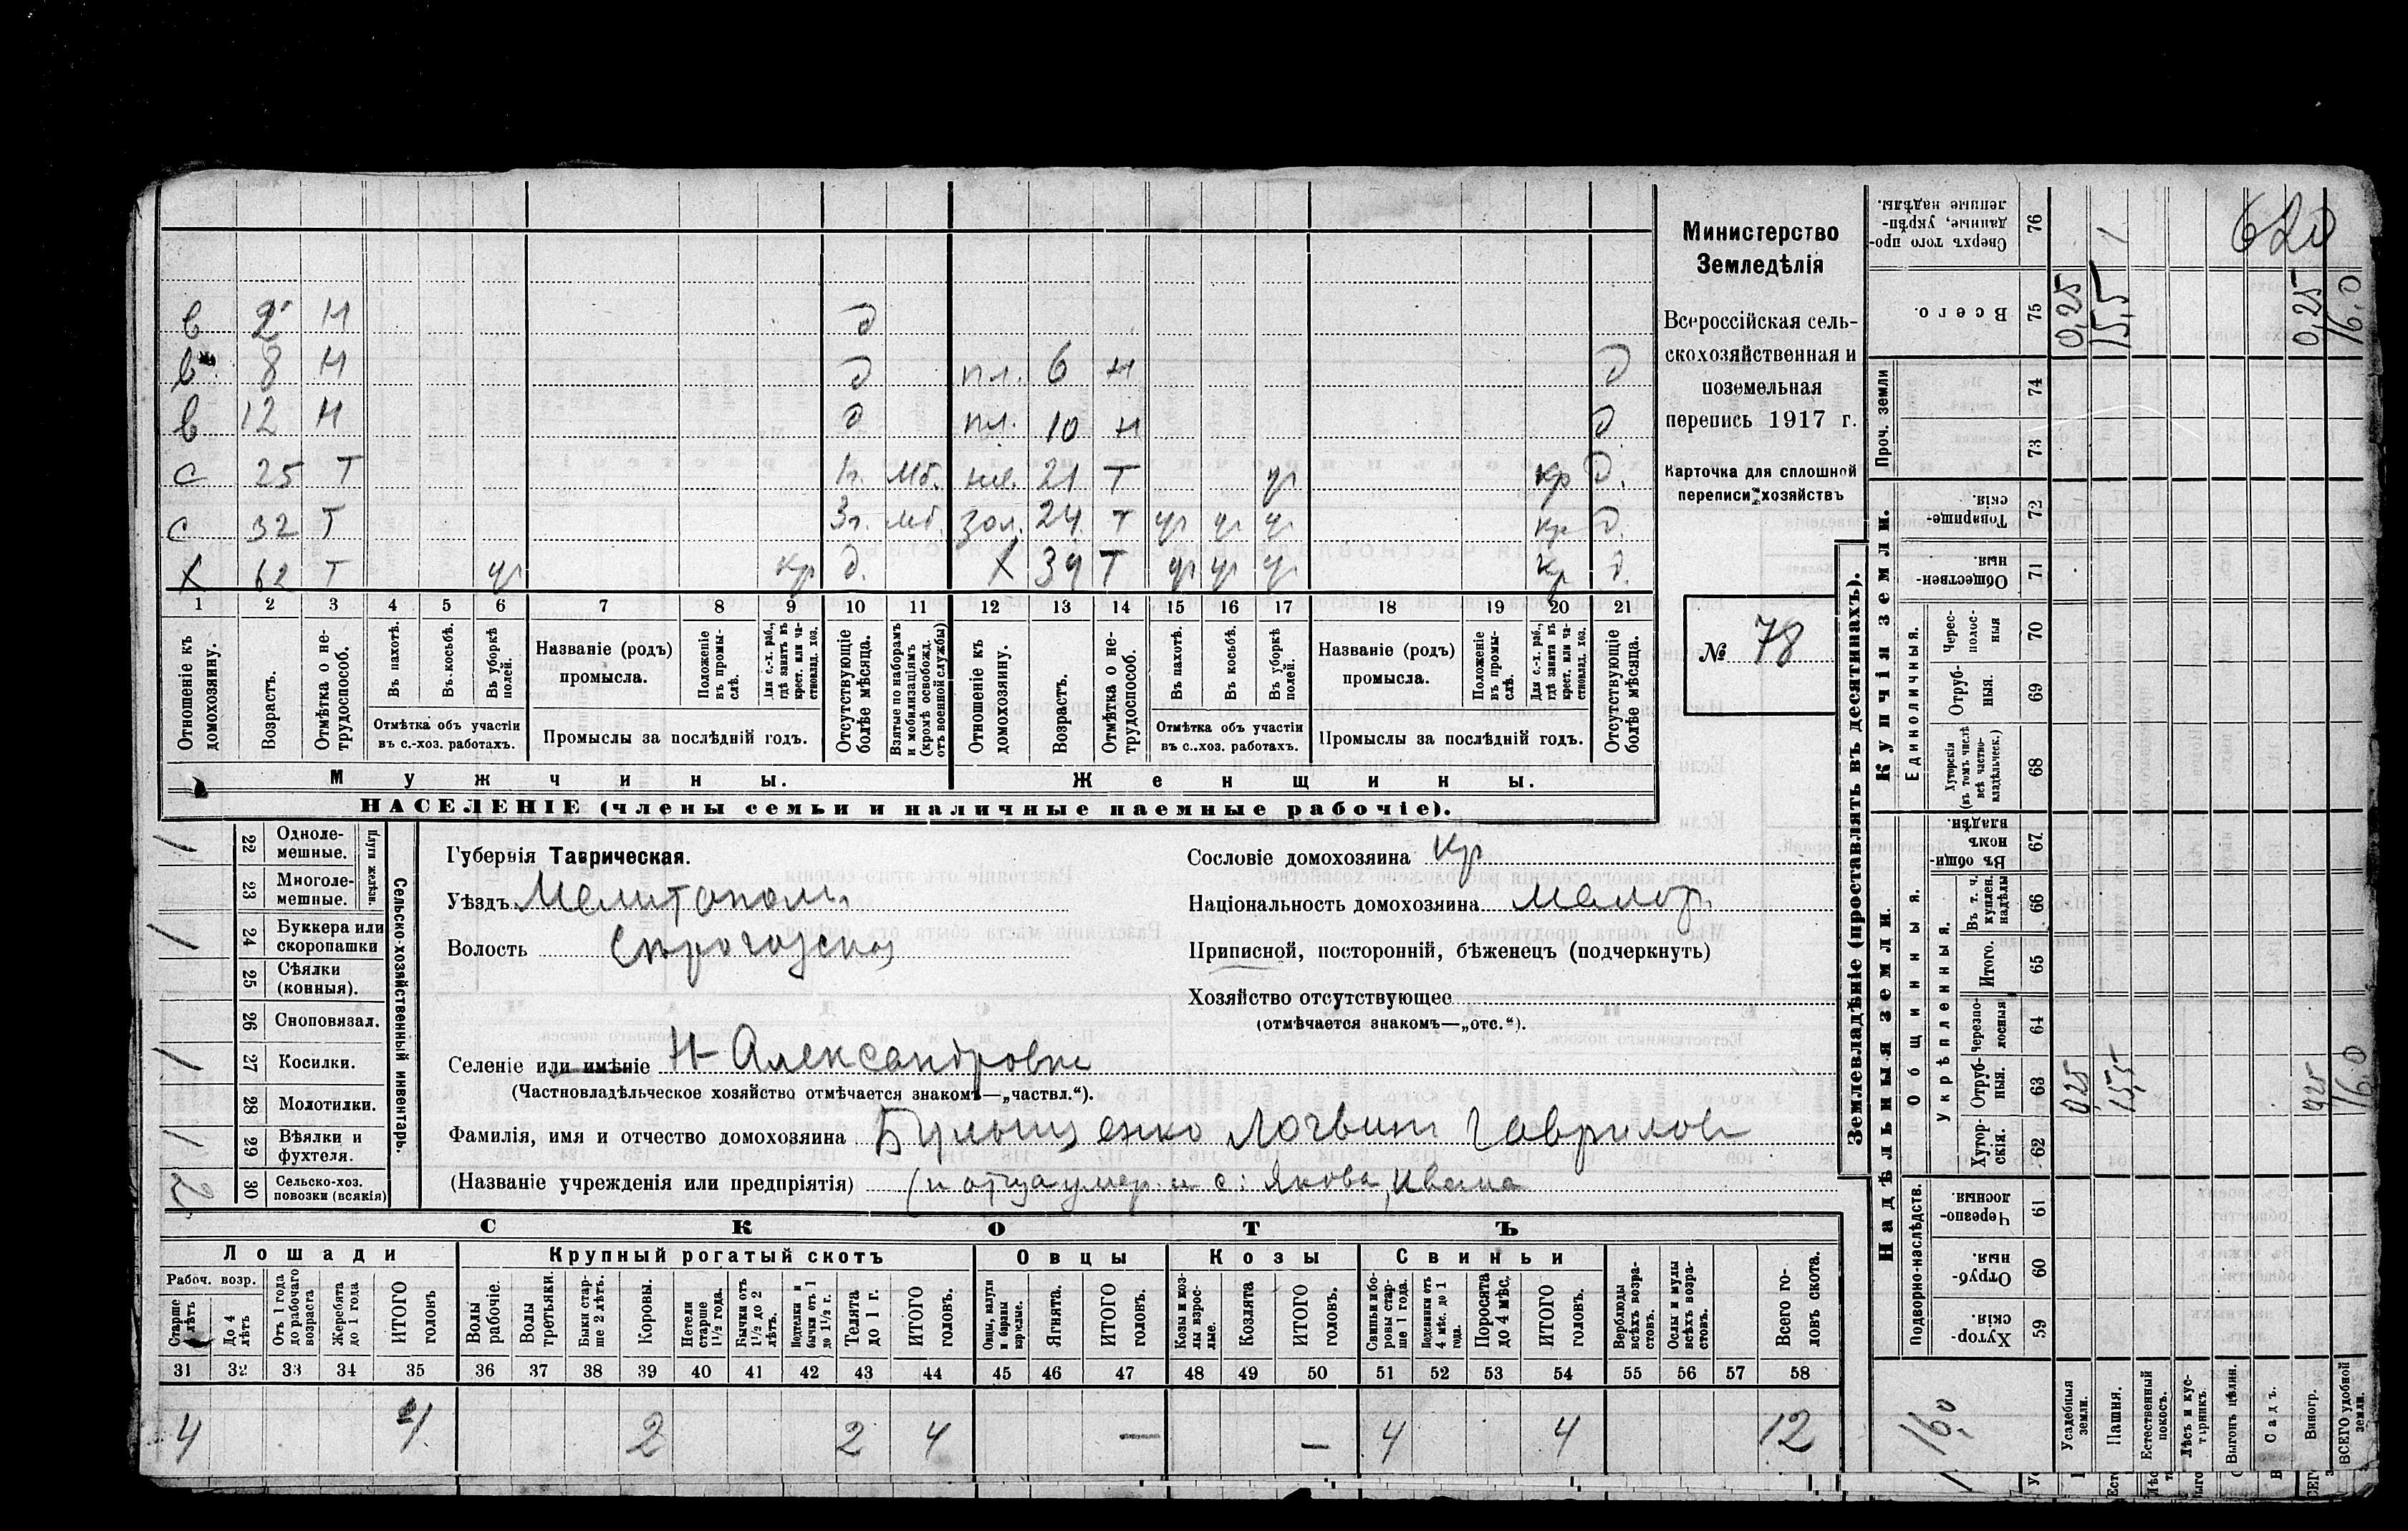 Министерство
Земледѣлія
Всероссійская сель-
скохозяйственная и
поземельная
перепись 1917 г.
Карточка для сплошной
переписи хозяйствъ
№ 78
в 2 Н д
в 8 Н д пл. 6 н д
в 12 Н д пл. 10 н д
с 25 Т 1г. Мб. 21 Т ур кр д.
с 32 Т 3г. Мб. 24 Т ур ур ур кр д.
Х 62 Т ур кр д. Х 39 Т ур ур ур кр д.
1 2 3 4 5 6 7 8 9 10 11 12 13 14 15 16 17 18 19 20 21
Отношеніе къ домохозяину.
Возрастъ.
Отмѣтка о не-трудоспособ.
Въ пахотѣ.
Въ косьбѣ.
Въ уборкѣ полей.
Отмѣтка объ участіи въ с.-хоз. работахъ.
Названіе (родъ) промысла.
Положеніе въ промы-слѣ.
Для с.-х. раб., гдѣ занятъ въ крест. или ча-стновлад. хоз.
Промыслы за послѣдній годъ.
Отсутствующіе болѣе мѣсяца.
Взятые по наборамъ и мобилизаціямъ (кромѣ освобожд. отъ военной службы)
Отношеніе къ домохозяину.
Возрастъ.
Отмѣтка о не-трудоспособ.
Въ пахотѣ.
Въ косьбѣ.
Въ уборкѣ полей.
Отмѣтка объ участіи въ с.-хоз. работахъ.
Названіе (родъ) промысла.
Положеніе въ промы-слѣ.
Для с.-х. раб., гдѣ занята въ крест. или ча-стновлад. хоз.
Промыслы за послѣдній годъ.
Отсутствующіе болѣе мѣсяца.
Мужчины. Женщины.
НАСЕЛЕНІЕ (члены семьи и наличные наемные рабочіе).
Сельско-хозяйственный инвентарь.
Плуги желѣзн.
22 Одноле-мешные. 1
23 Многоле-мешные.
24 Буккера или скоропашки 1
25 Сѣялки (конныя).
26 Сноповязал.
27 Косилки. 1
28 Молотилки.
29 Вѣялки и фухтеля. 1
30 Сельско-хоз. повозки (всякія) 2
Губернія Таврическая.
Уѣздъ Мелитополь
Волость
Сословіе домохозяина Кр
Національность домохозяина Малор.
Приписной, посторонній, бѣженецъ (подчеркнуть)
Хозяйство отсутствующее
(отмѣчается знакомъ—„отс.“).
Селеніе или имѣніе Н-Александровка
(Частновладѣльческое хозяйство отмѣчается знакомъ—„частвл.“).
Фамилія, имя и отчество домохозяина Логвин Гаврилов
(Названіе учрежденія или предпріятія) Якова, Ивана
СКОТЪ
Лошади Крупный рогатый скотъ Овцы Козы Свиньи
Рабоч. возр.
Старше 4 лѣтъ
До 4 лѣтъ
Отъ 1 года до рабочаго возраста
Жеребята до 1 года
ИТОГО головъ
Волы рабочіе.
Волы третьяки.
Быки стар-ше 2 лѣтъ.
Коровы.
Нетели старше 1½ года.
Бычки отъ 1½ до 2 лѣтъ.
Подтелки и бычки отъ 1 до 1½ г.
Телята до 1 г.
ИТОГО головъ.
Овцы, валухи и бараны взрослые.
Ягнята.
ИТОГО головъ.
Козы и коз-лы взрос-лые.
Козлята
ИТОГО головъ.
Свиньи и бо-ровы стар-ше 1 года.
Подсвинки отъ 4 мѣс. до 1 года.
Поросята до 4 мѣс.
ИТОГО головъ.
Верблюды всѣхъ возра-стовъ.
Ослы и мулы всѣхъ возра-стовъ.
Всего го-ловъ скота.
31 32 33 34 35 36 37 38 39 40 41 42 43 44 45 46 47 48 49 50 51 52 53 54 55 56 57 58
4 4 2 2 4 — — 4 4 12
Землевладѣніе (проставлять въ десятинахъ).
Купчія земли.
Надѣльныя земли.
Проч. земли
Единоличныя.
Общинныя.
Укрѣпленныя.
Подворно-наслѣдств.
76 Сверхъ того про-данные, укрѣп-ленные надѣлы.
75 Всего. 0,25 15,5 0,25 16,0
74
73
72 Товарище-скія.
71 Обществен-ныя
70 Черес-полос-ныя
69 Отруб-ныя.
68 Хуторскія (въ томъ числѣ всѣ частно-владѣльческ.)
67 Въ общин-номъ владѣн.
66 Въ т. ч. куплен. надѣлы
65 Итого.
64 Черезпо-лосныя
63 Отруб-ныя. 0,25 15,5 0,25 16,0
62 Хутор-скія.
61 Черезпо-лосныя.
60 Отруб-ныя.
59 Хутор-скія.
620
16,0
Усадебныя земли.
Пашня.
Естественный покосъ.
Лѣсъ и кус-тарникъ.
Выгонъ цѣлин.
Садъ.
Виногр.
ВСЕГО удобной земли.